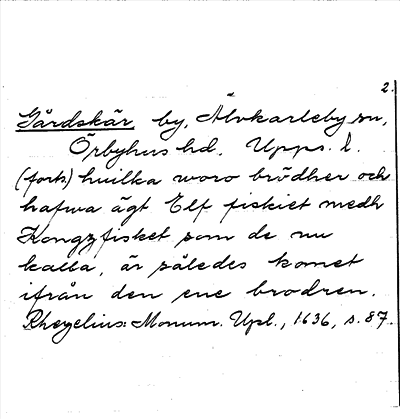 2.
Gårdskär, by, Älvkarleby sn,
Örbyhus hd. Upps. l.
(forts.) huilka woro brödher och
hafwa ägt Elf fiskiet medh
Kongzfisket som de nu
kalla, är således komet
ifrån den ene brodren.
Rhezelius: Monum. Upl., 1636, s. 87.